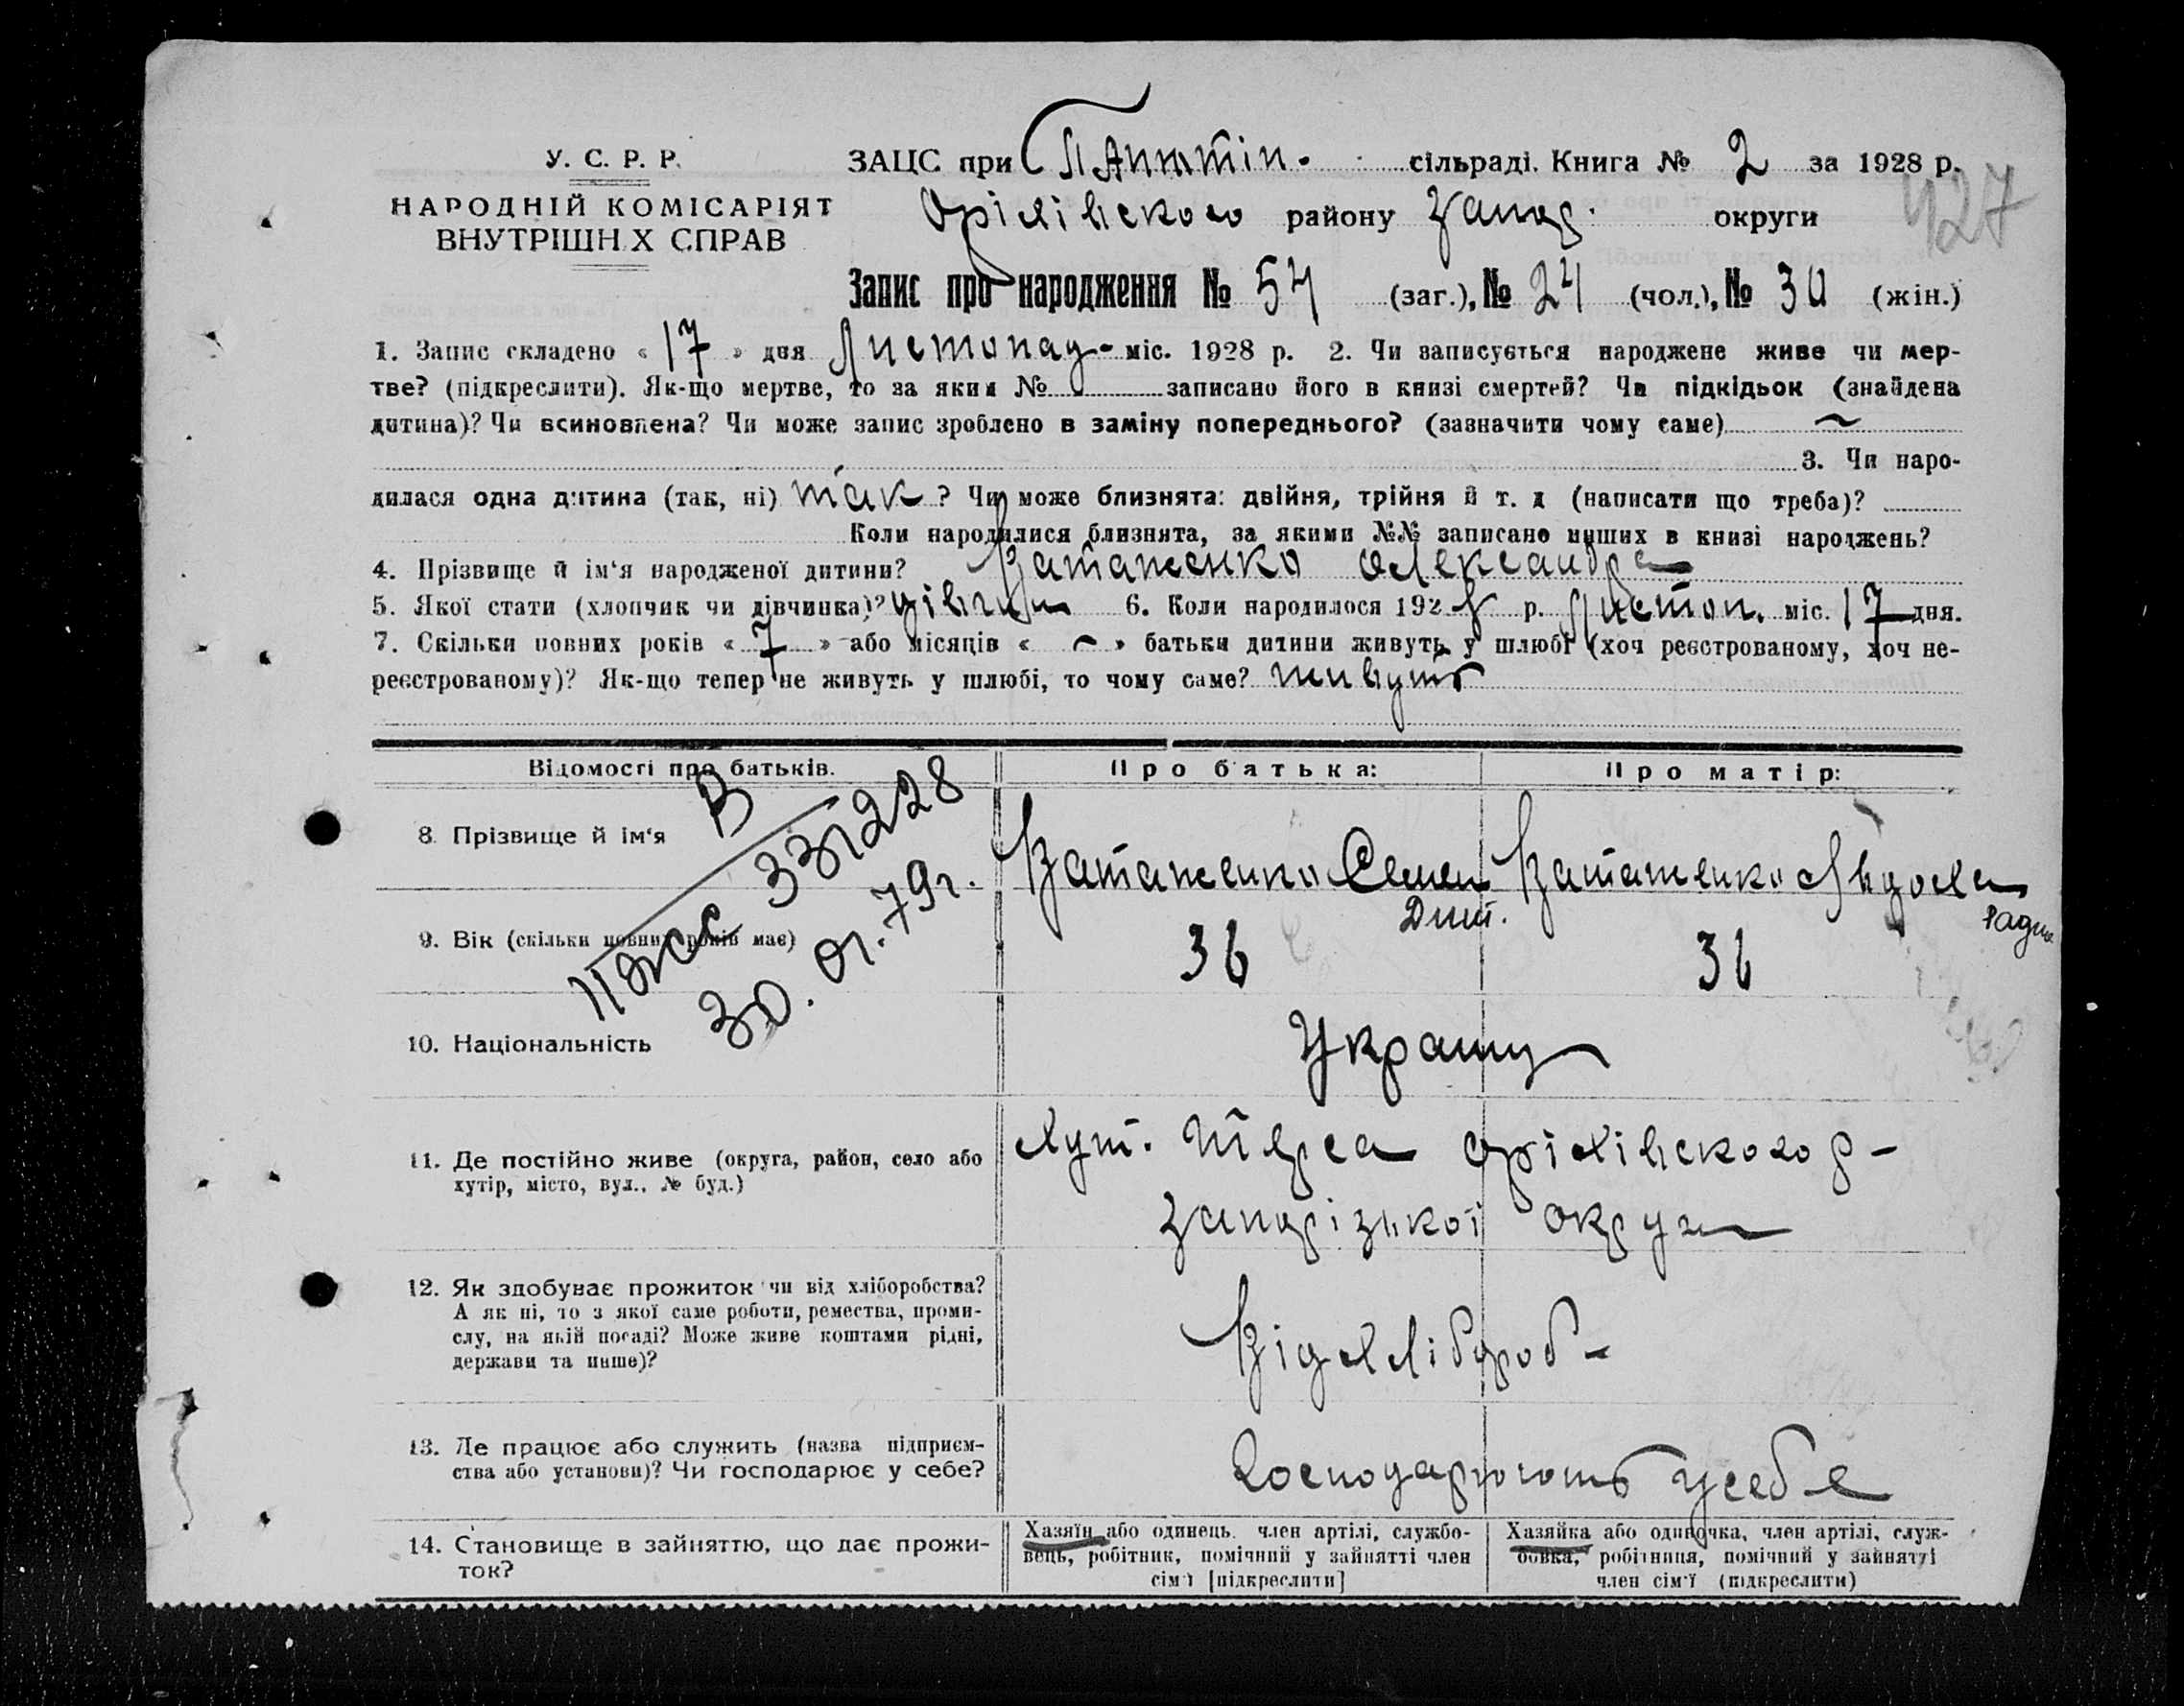 У. С. Р. Р.
НАРОДНІЙ КОМІСАРІЯТ
ВНУТРІШН Х СПРАВ
ЗАЦС при сільраді. Книга № 2 за 1928 р.
427
Оріхівского району Запор. округи
Запис про народження № 54 (заг.), № 24 (чол.), № 30 (жін.)
1. Запис складено « 17 » дня Листопад- міс. 1928 р. 2. Чи записується народжене живе чи мер-
тве? (підкреслити). Як-що мертве, то за яким № записано його в книзі смертей? Чи підкідьок (знайдена
дитина)? Чи всиновлена? Чи може запис зроблено в заміну попереднього? (зазначити чому саме) ~
3. Чи наро-
дилася одна дитина (так, ні) так ? Чи може близнята: двійня, трійня й т. д (написати що треба)?
Коли народилися близнята, за якими №№ записано инших в книзі народжень?
4. Прізвище й ім‘я народженої дитини? Ватаженко Олександра
5. Якої стати (хлопчик чи дівчинка)? дівчин 6. Коли народилося 1928 р. Листоп. міс. 17 дня.
7. Скільки повних років « 7 » або місяців « ~ » батьки дитини живуть у шлюбі (хоч реєстрованому, хоч не-
реєстрованому)? Як-що тепер не живуть у шлюбі, то чому саме? живуть
Відомості про батьків. Про батька: Про матір:
8. Прізвище й ім‘я Ватаженко Семен Дмит. Ватаженко Явдоха
В
331228
30. 01. 79г.
9. Вік (скільки повних років має) 36 36
10. Національність Українц
11. Де постійно живе (округа, район, село або
хутір, місто, вул., № буд.)
Хут. Терса Оріхівского р-
Запорізької округи
12. Як здобуває прожиток чи від хліборобства?
А як ні, то з якої саме роботи, ремества, проми-
слу, на якій посаді? Може живе коштами рідні,
держави та инше)?
Від хлібороб-
13. Де працює або служить (назва підприєм-
ства або установи)? Чи господарює у себе?
Господарюють у себе
14. Становище в зайняттю, що дає прожи-
ток?
Хазяїн або одинець, член артілі, службо-
вець, робітник, помічний у зайнятті член
сім‘ї [підкреслити]
Хазяйка або одиночка, член артілі, служ-
бовка, робітниця, помічний у зайнятті
член сім‘ї (підкреслити)